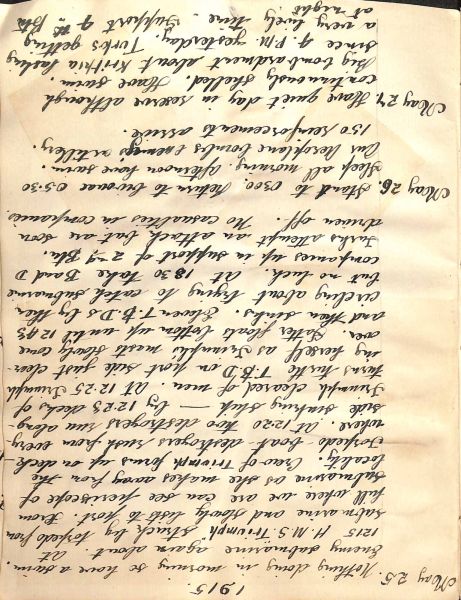 1915
May 25. Nothing doing in morning so have a swim.
Enemy submarine again about at
1215 H.M.S. Triumph struck by torpedo from
submarine and slowly lists to port. From
hill where we are can see periscope of
submarine as she makes away from the
locality. Crew of Triumph forms up on deck
Torpedo-boat-destroyers rush from every-
where. At 12.20 two destroyers run along-
side sinking ship — by 12.23 decks of
Triumph cleared of men. At 12.25 Triumph
turns turtle T.B.D on port side just clear-
ing herself as Triumph's masts slowly come
over. Latter floats bottom up until 12.43
and then sinks. Eleven T.B.D's by then
circling about trying to catch submarine
but no luck. At 1830 take B and D
companies up in support of 2nd Btn.
Turks attempt an attack but are soon
driven off. No casualties in companies.
May 26 Stand to 0300. Return to bivouac 05.30
Sleep all morning, afternoon have swim.
Our Aeroplane bombs Enemys artillery.
130 reinforcements arrive.
May 27. Have quiet day in reserve although
continuously shelled. Have swim.
Big bombardment about Krithia lasting
since 4 P.M. yesterday. Turks getting
a very lively time. Support 4th Btn
at night.